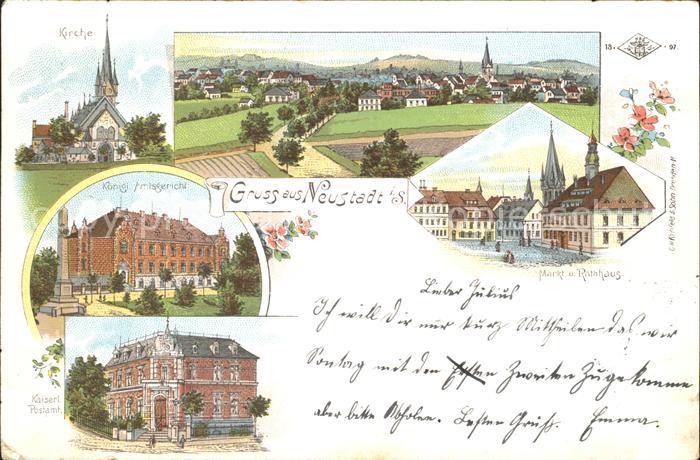 Kirche
18 · 97
Königl. Amtsgericht
Gruss aus Neustadt i. S.
Markt u. Rathhaus.
Kaiserl. Postamt.
Lieber Julius
Ich will Dir nur kurz Mittheilen das wir
Sontag mit den Zweiten Zug komme
aber bitte Abholen. Besten Gruß. Emma.